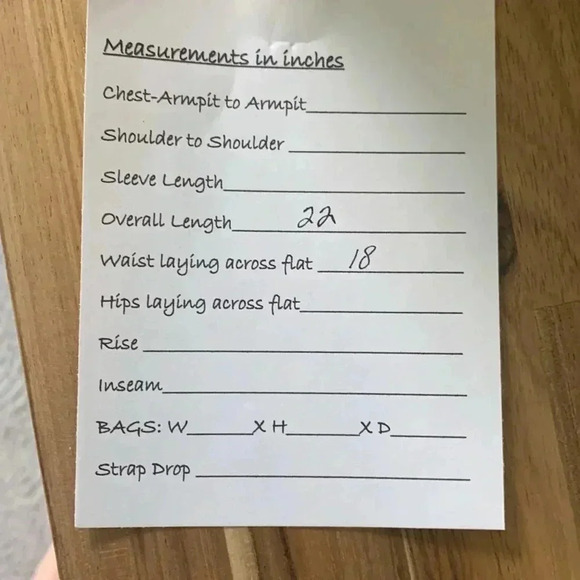 Measurements in inches
Chest-Armpit to Armpit
Shoulder to Shoulder
Sleeve Length
Overall Length 22
Waist laying across flat 18
Hips laying across flat
Rise
Inseam
BAGS: W X H X D
Strap Drop